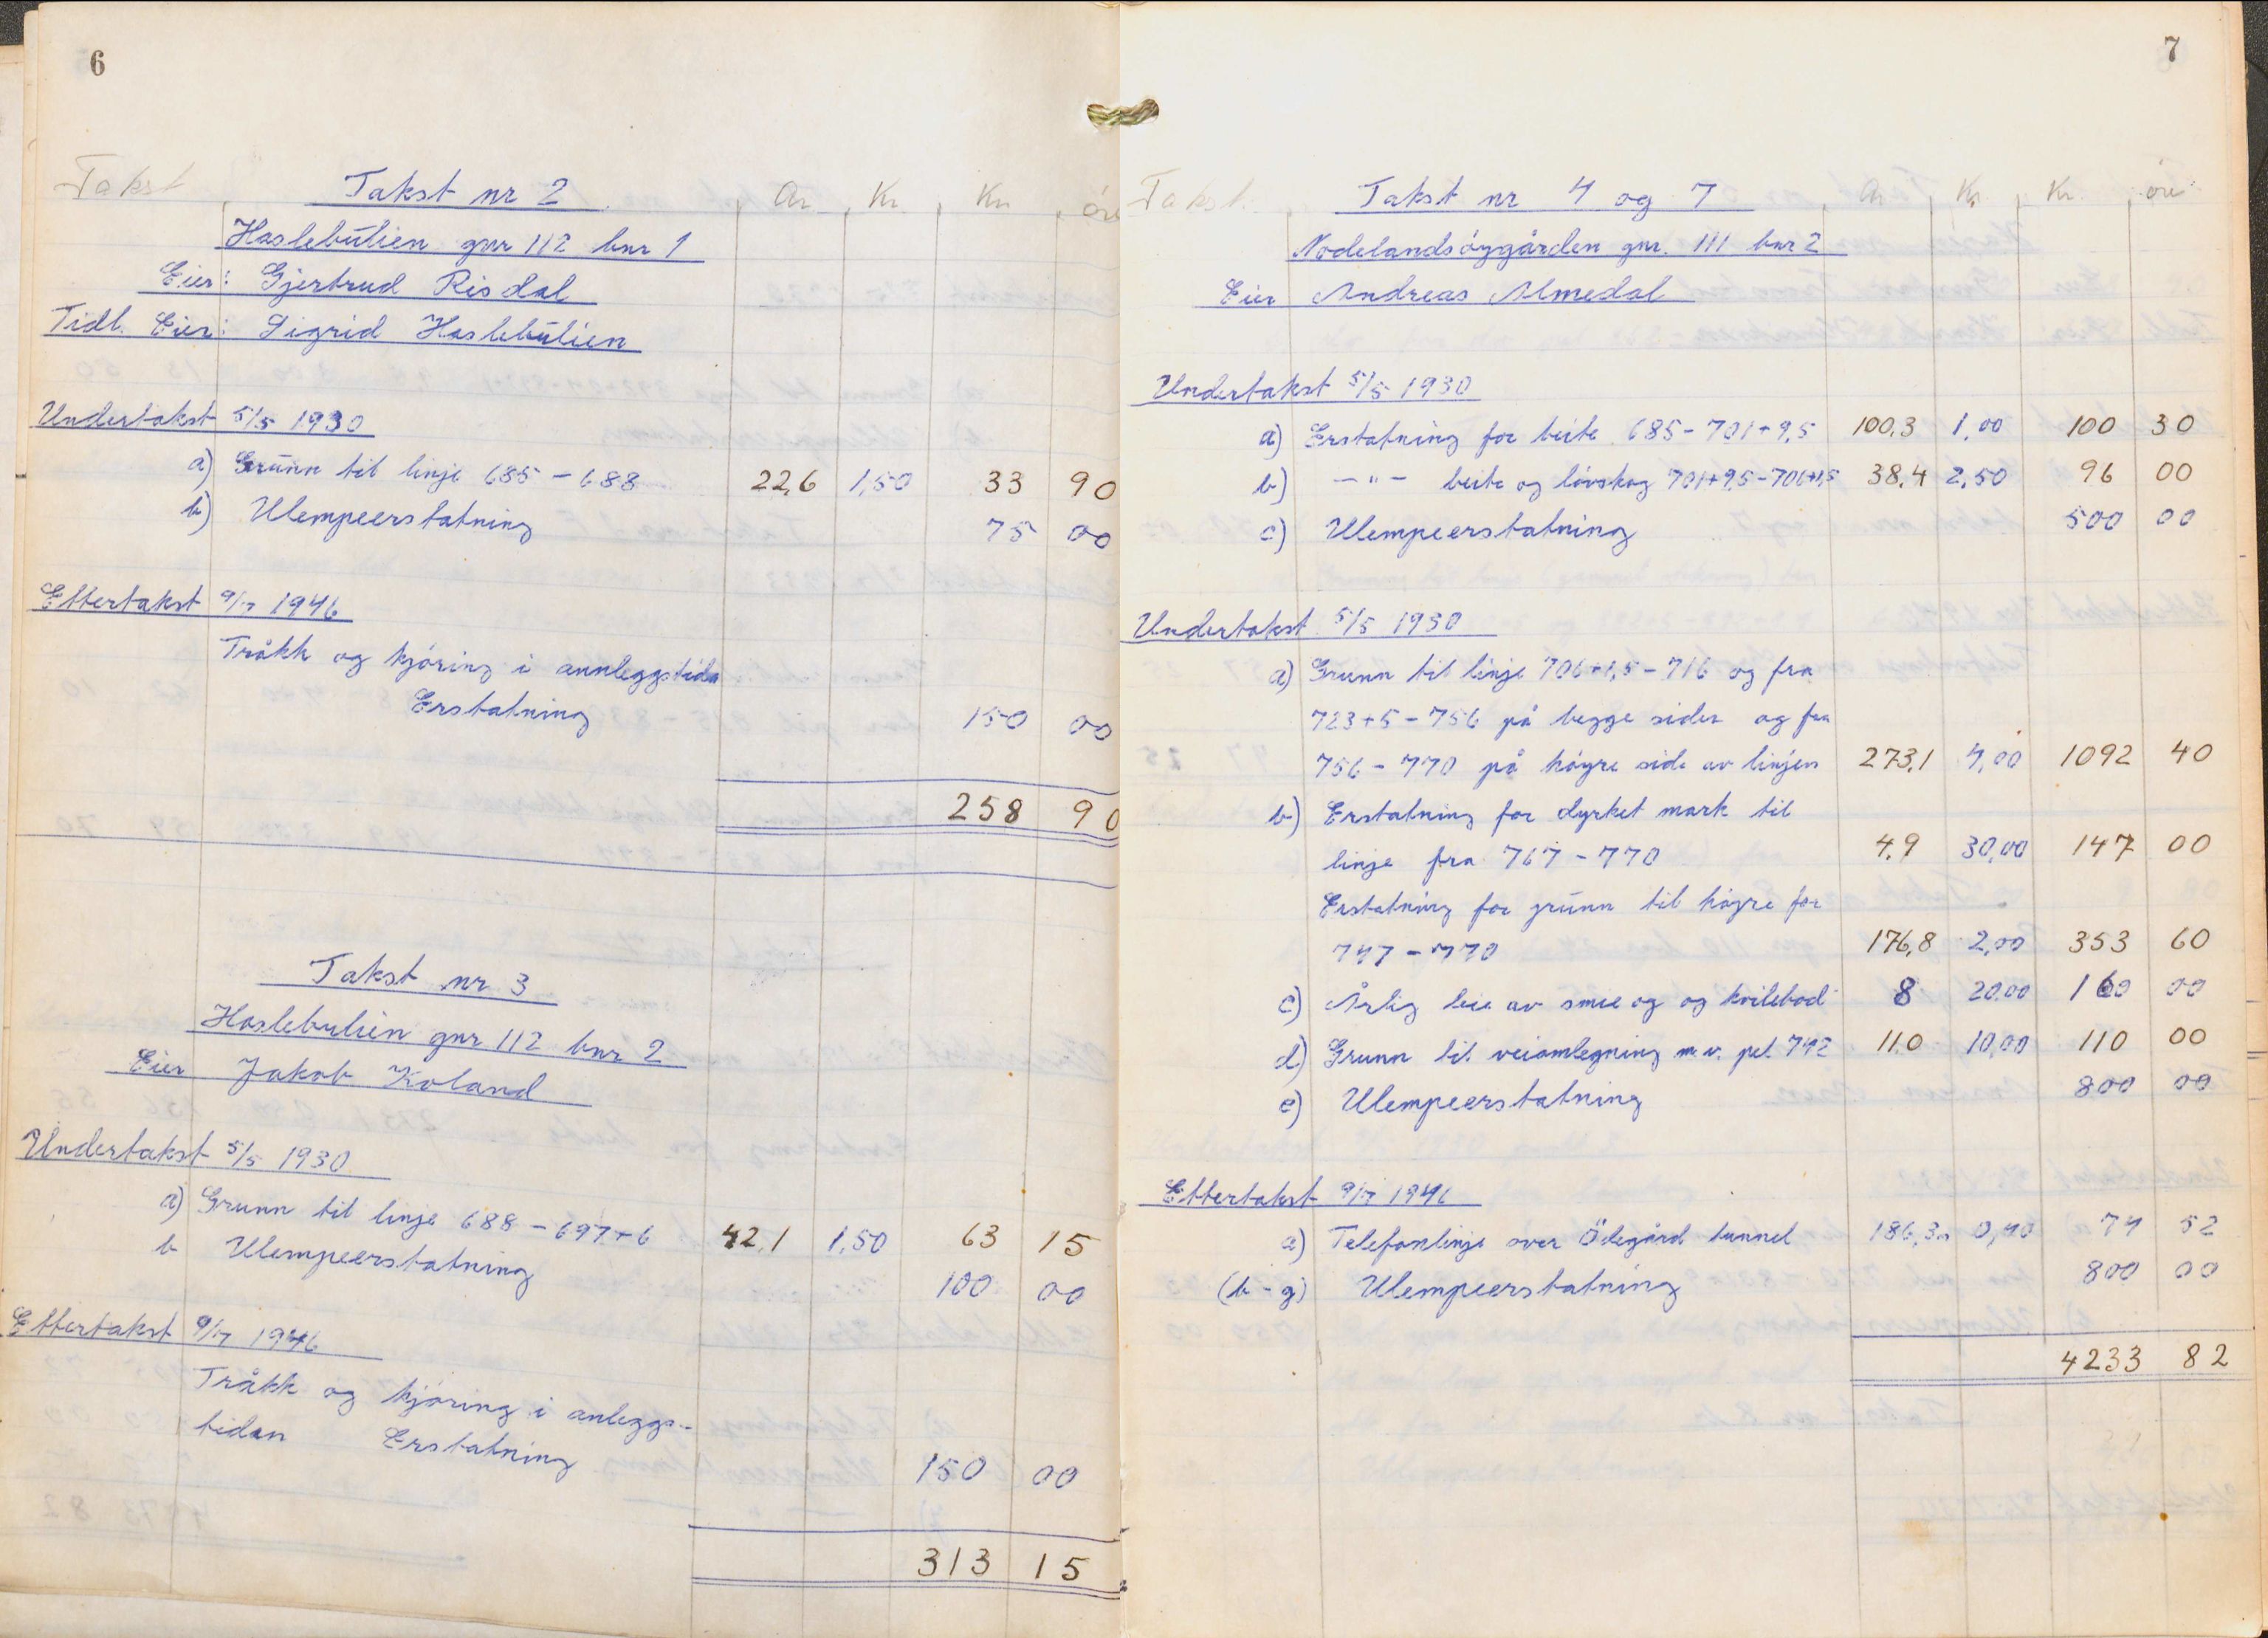 6
Takst Takst nr 2 Ar Kr. Kr. øre
Haslebulien gnr 112 bnr 1
Eier: Gjertrud Risdal
Tidl. Eier: Sigrid Haslebulien
Undertakst 5/5 1930
a) Grunn til linje 685 - 688 22,6 1,50 33 90
b) Ulempeerstatning 75 00
Ettertakst 9/7 1946
Tråkk og kjøring i annleggstiden
Erstatning 150 00
258 90
Takst nr 3
Haslebulien gnr 112 bnr 2
Eier Jakob Koland
Undertakst 5/5 1930
a) Grunn til linje 688 - 697+6 42,1 1,50 63 15
b Ulempeerstatning 100 00
Ettertakst 9/7 1946
Tråkk og kjøring i anleggs-
tiden Erstatning 150 00
313 15
7
Takst. Takst nr 4 og 7 Ar Kr. Kr. øre
Nodelandsøygården gnr. 111 bnr 2
Eier Andreas Almedal
Undertakst 5/5 1930
a) Erstatning for beite 685 - 701+9,5 100,3 1,00 100 30
b) — " — beite og løvskog 701+9,5 - 706+1,5 38,4 2,50 96 00
c) Ulempeerstatning 500 00
Undertakst 5/5 1930
a) Grunn til linje 706+1,5 - 716 og fra
723+5 - 756 på begge sider og fra
756 - 770 på høyre side av linjen 273,1 4,00 1092 40
b) Erstatning for dyrket mark til
linje fra 767 - 770 4,9 30,00 147 00
Erstatning for grunn til høyre for
747 - 770 176,8 2,00 353 60
c) Årlig leie av smie og og hvilebod 8 20,00 160 00
d) Grunn til veiomlegning m.v. pel 742 11,0 10,00 110 00
e) Ulempeerstatning 800 00
Ettertakst 9/7 1946
a) Telefonlinje over Ödegård tunnel 186,3 0,40 74 52
(b - g) Ulempeerstatning 800 00
4233 82